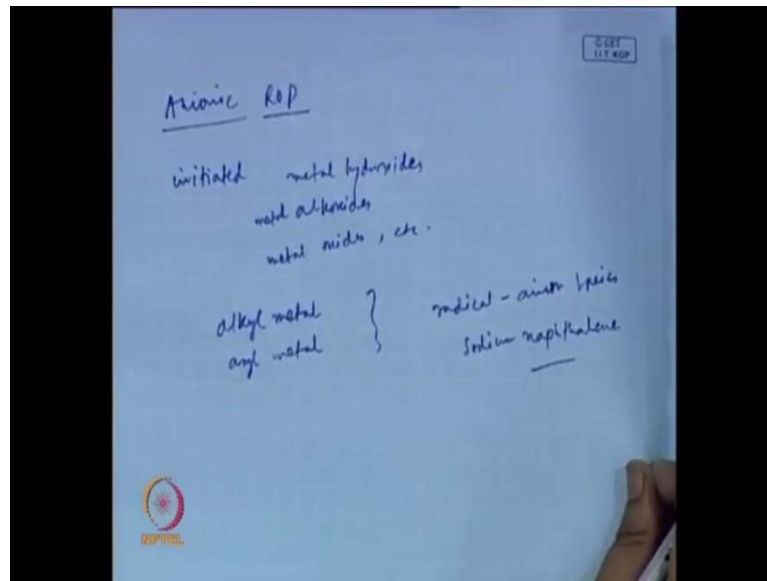 © CET
I.I.T. KGP
Anionic ROP
initiated metal hydroxides
metal alkoxides
metal oxides, etc.
alkyl metal
aryl metal
radical - anion species
Sodium naphthalene
NPTEL